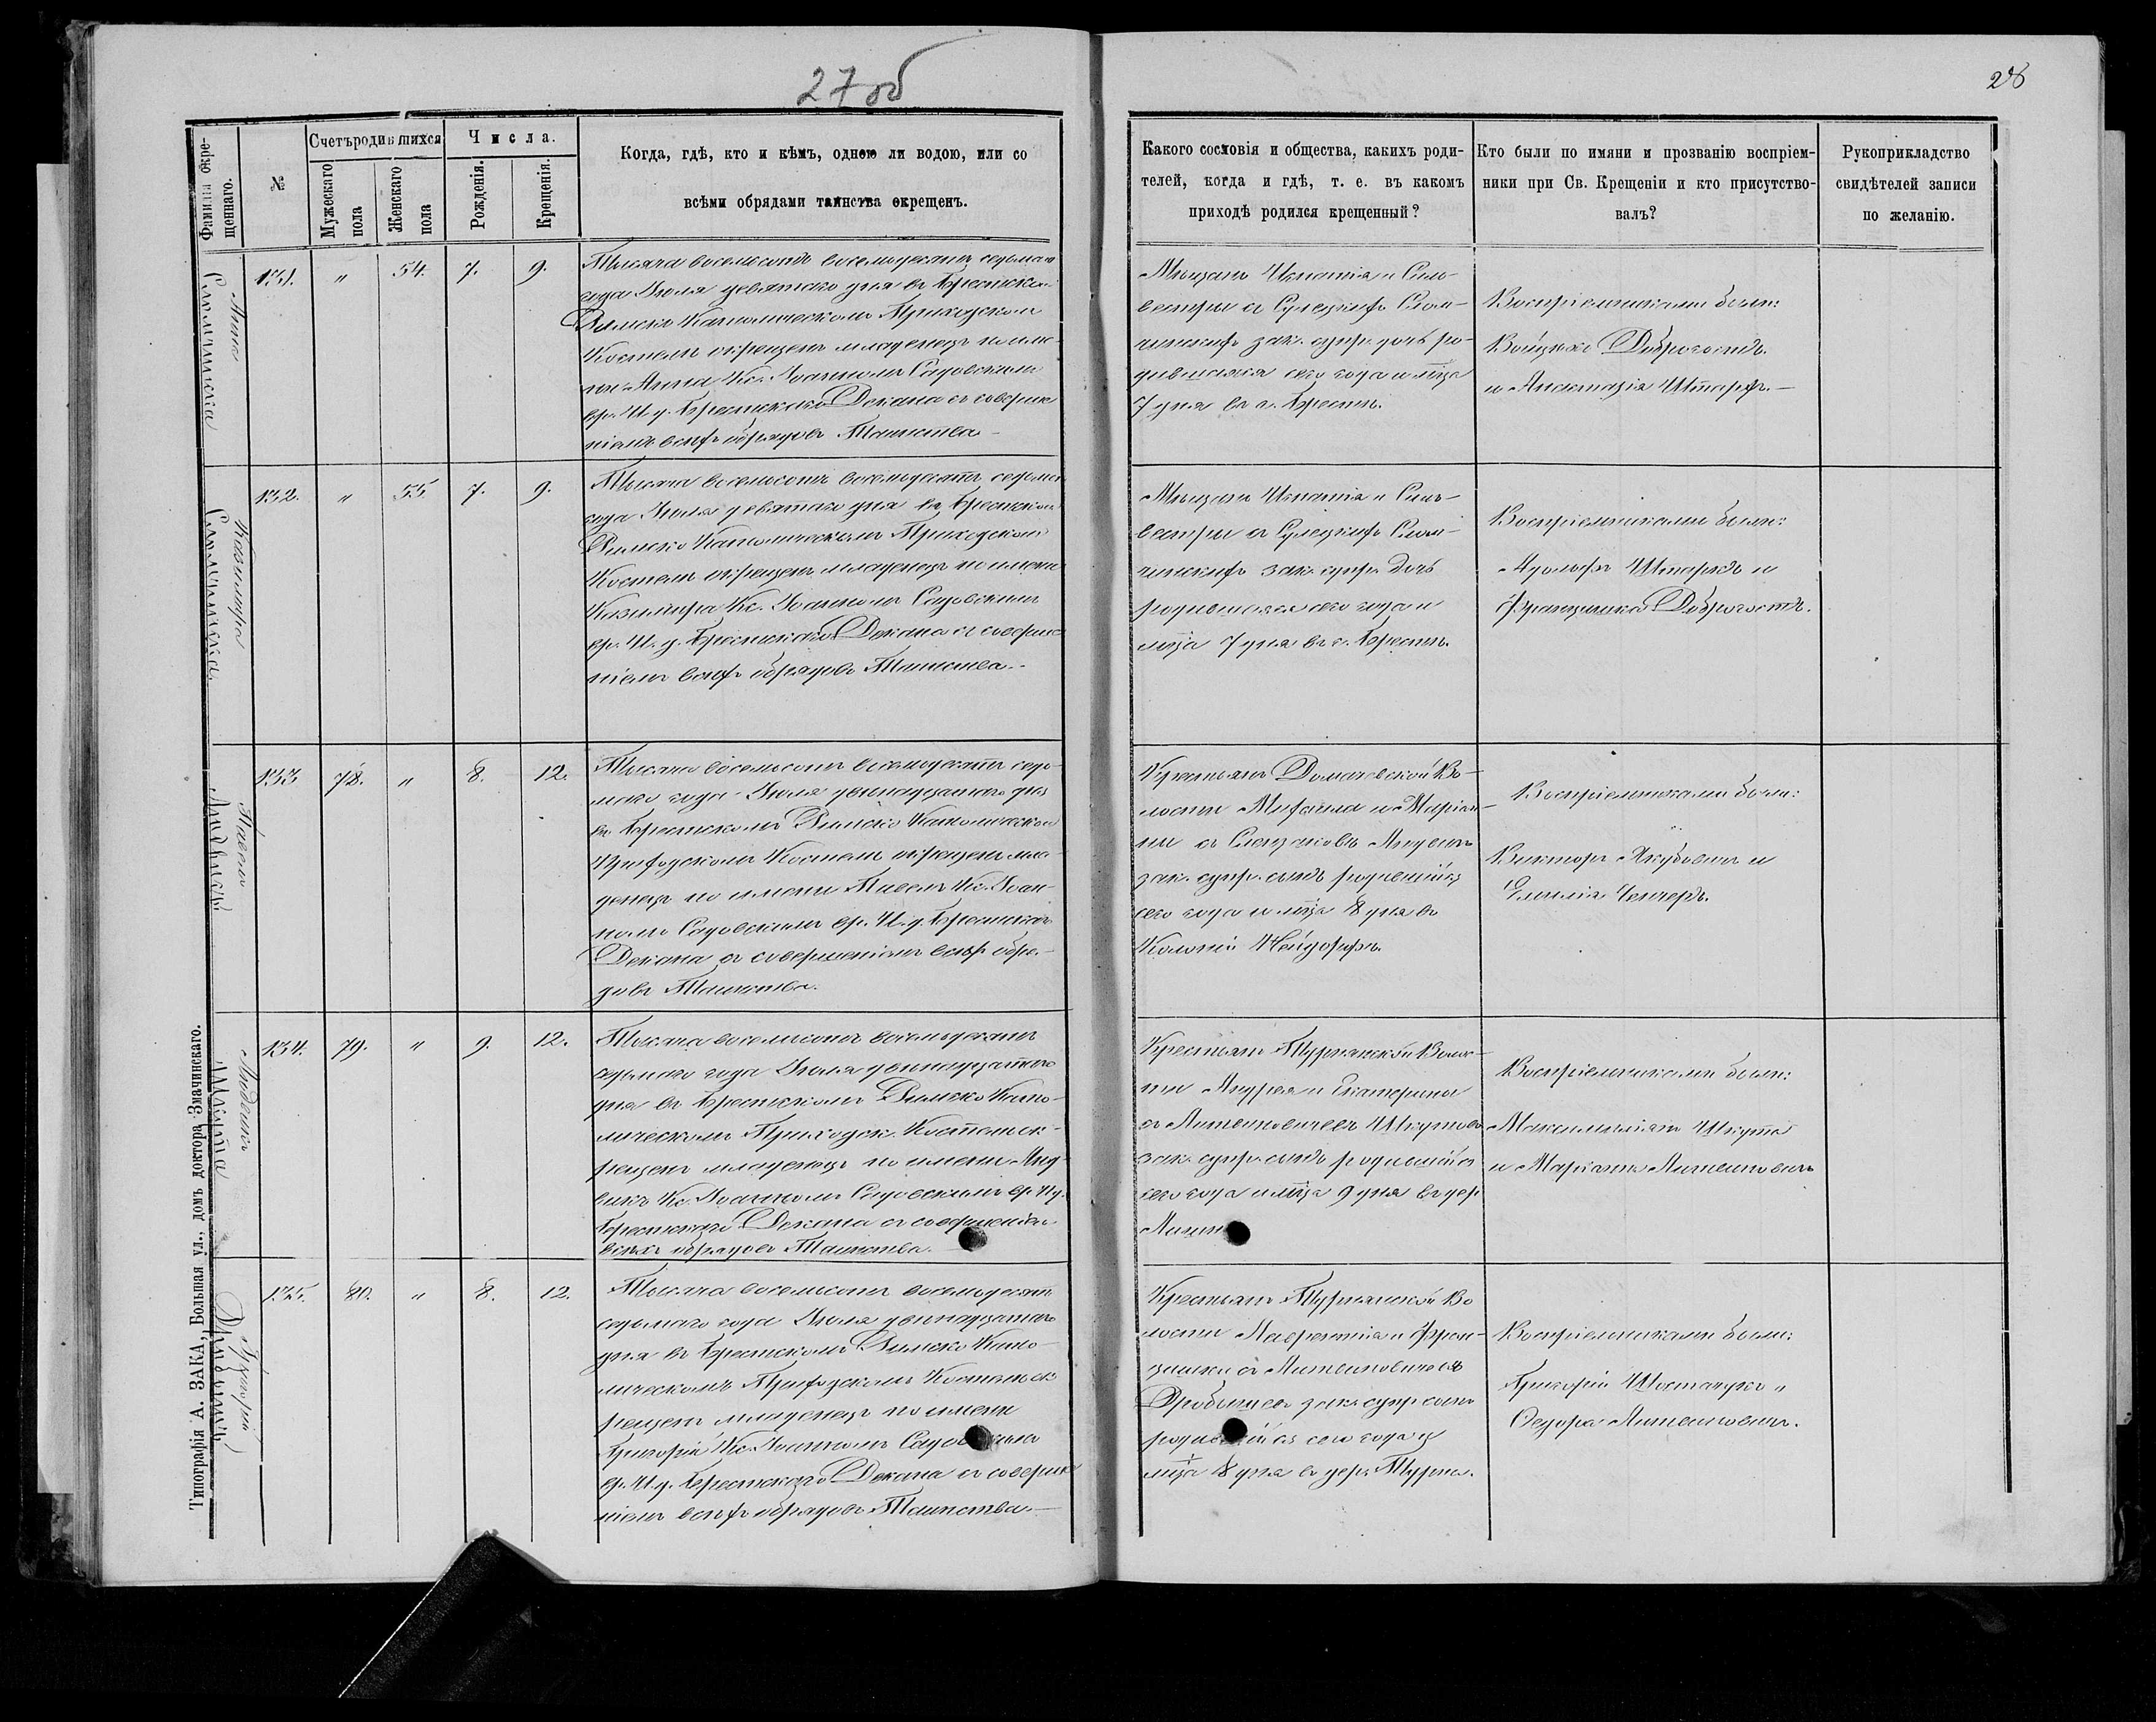 27 об
28
Фамилія окре-
щеннаго.
№
Счетъ родившихся
Мужескаго
пола
Женскаго
пола
Числа.
Рожденія.
Крещенія.
Когда, гдѣ, кто и кѣмъ, одною ли водою, или со
всѣми обрядами таинства окрещенъ.
Какого сословія и общества, какихъ роди-
телей, когда и гдѣ, т. е. въ какомъ
приходѣ родился крещенный?
Кто были по имяни и прозванію воспріем-
ники при Св. Крещеніи и кто присутство-
валъ?
Рукоприкладство
свидѣтелей записи
по желанію.
Анна
131.
"
54.
7.
9.
Тысяча восемьсотъ восемьдесятъ седьмаго
года Іюля девятаго дня въ Брестскомъ
Римско Католическомъ Приходскомъ
Костелѣ окрещенъ младенецъ по име-
ни Анна Кс. Іоанномъ Садовскимъ
вр. И. д. Брестскаго Декана съ соверше
ніемъ всѣхъ обрядовъ Таинства
Мѣщанъ Игнатія и Силь-
вестры съ
закон. супр. дочь ро-
дившаяся сего года и мца
7 дня въ г. Брестѣ.
Воспріемниками были:
Войцехъ Доброгостъ
и Анастазія Штархъ.
Казимира
132.
"
55
7.
9.
Тысяча восемьсотъ восемьдесятъ седьмаго
года Іюля девятаго дня въ Брестскомъ
Римско Католическомъ Приходскомъ
Костелѣ окрещенъ младенецъ по имени
Казимира Кс. Іоанномъ Садовскимъ
вр. И. д. Брестскаго Декана съ соверше
ніемъ всѣхъ обрядовъ Таинства.
Мѣщанъ Игнатія и Силь-
вестры съ
зак. супр. дочь
родившаяся сего года и
мца 7 дня въ г. Брестѣ.
Воспріемниками были:
Адольфъ и
Францишка Доброгостъ.
Павелъ
133
78.
"
8.
12.
Тысяча восемьсотъ восемьдесятъ седь-
маго года Іюля двѣнадцатаго дня
въ Брестскомъ Римско Католическомъ
Приходскомъ Костелѣ окрещенъ мла-
денецъ по имени Павелъ Кс. Іоан-
номъ Садовскимъ вр. И. д. Брестскаго
Декана съ совершеніемъ всѣхъ обря-
довъ Таинства.
Крестьянъ Домачевской Во-
лости Михаила и Маріан-
ны съ
зак. супр. сынъ родившійся
сего года и мца 8 дня въ
Колоніи Нейдорфъ.
Воспріемниками были:
Викторъ Якубовичъ и
Эмилія
134.
79.
"
9.
12.
Тысяча восемьсотъ восемьдесятъ
седьмаго года Іюля двѣнадцатаго
дня въ Брестскомъ Римско Като-
лическомъ Приходск. Костелѣ ок-
рещенъ младенецъ по имени Люд-
викъ Кс. Іоанномъ Садовскимъ вр. И. д.
Брестскаго Декана съ совершеніемъ
всѣхъ обрядовъ Таинства.
Крестьянъ Турнянской Волос-
ти Андрея и Екатерины
съ Литвиновичевъ Шкутовъ
зак. супр. сынъ родившійся
сего года и мца 9 дня въ дер.
Воспріемниками были:
Максимиліанъ Шкутъ
и Маріанна Литвиновичъ
Григорій
135.
80.
"
8.
12.
Тысяча восемьсотъ восемьдесятъ
седьмаго года Іюля двѣнадцатаго
дня въ Брестскомъ Римско Като-
лическомъ Приходскомъ Костелѣ ок
рещенъ младенецъ по имени
Григорій Кс. Іоанномъ Садовскимъ
вр. И. д. Брестскаго Декана съ соверше
ніемъ всѣхъ обрядовъ Таинства.
Крестьянъ Турнянской Во
лости Лаврентія и Фран-
цишки съ Литвиновичевъ
зак. супр. сынъ
родившійся сего года и
мца 8 дня въ дер. Турна.
Воспріемниками были:
Григорій и
Федора Литвиновичъ.
Типографія А. ЗАКА, Большая ул., домъ доктора Значинскаго.